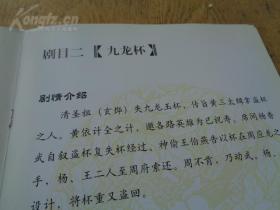 剧目二【九龙杯】
剧情介绍
清圣祖(玄烨)失九龙玉杯,传旨黄三太缉拿盗杯
之人。黄依计全之计,邀各路英雄为己祝寿,席间杨香
武自叙盗杯复失杯经过。神偷王伯燕告以杯在周应龙之
手,杨、王二人至周府索还。周不肯,乃动武,杨
设计,将杯重又盗回。